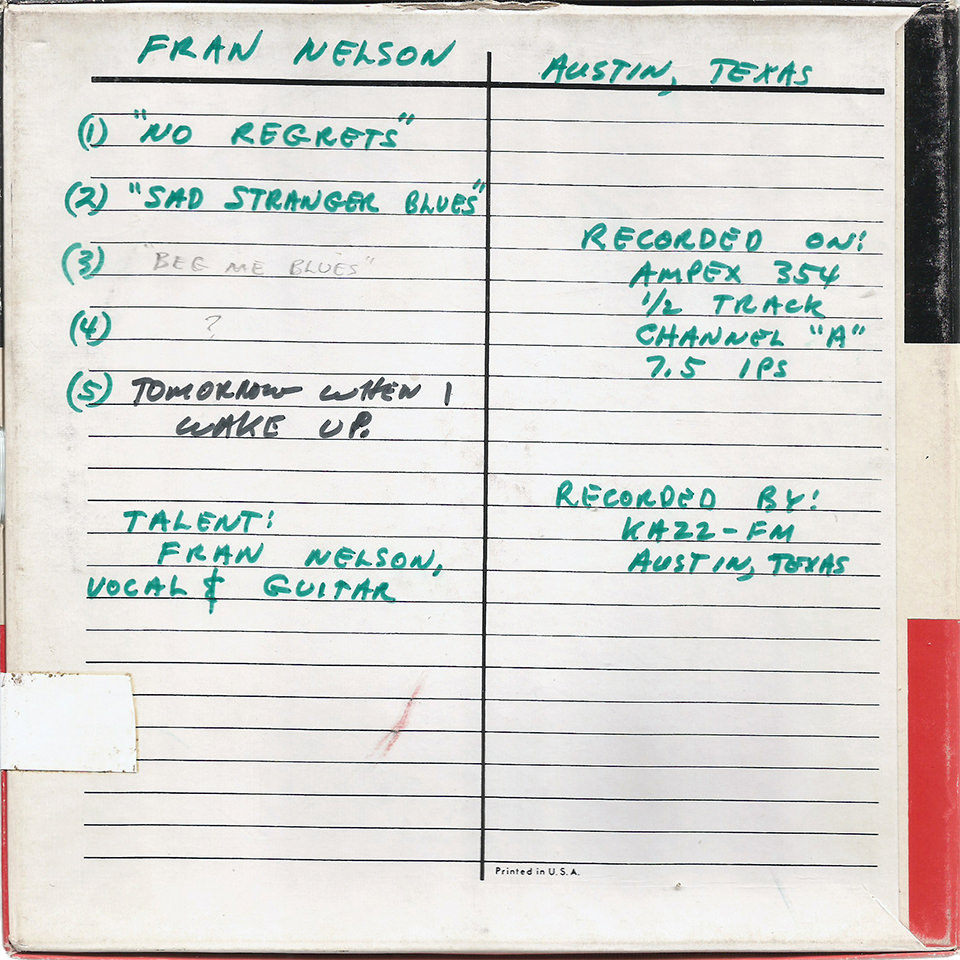 FRAN NELSON
(1) "NO REGRETS"
(2) "SAD STRANGER BLUES"
(3) "BEG ME BLUES"
(4) ?
(5) TOMORROW WHEN I
WAKE UP.
TALENT:
FRAN NELSON,
VOCAL & GUITAR
AUSTIN, TEXAS
RECORDED ON:
AMPEX 354
1/2 TRACK
CHANNEL "A"
7.5 IPS
RECORDED BY:
KAZZ-FM
AUSTIN, TEXAS
Printed in U.S.A.